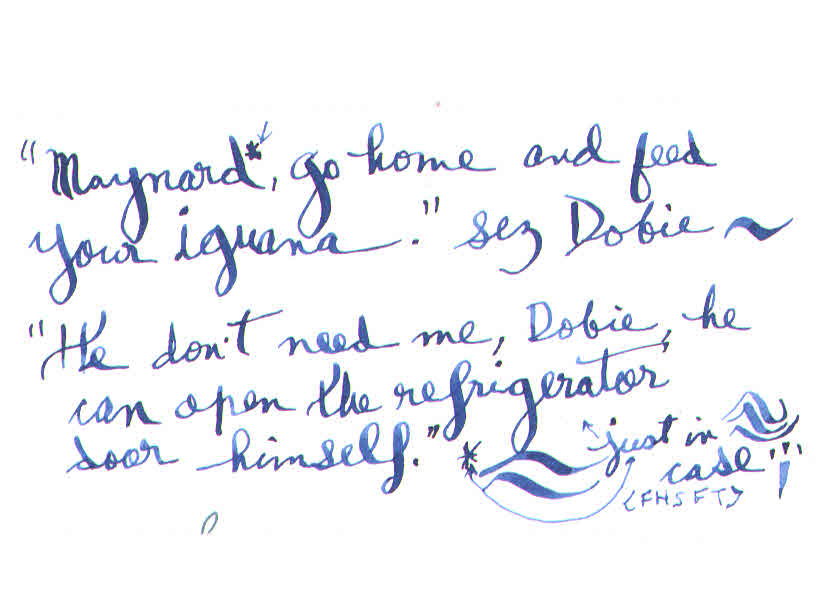 "Maynard*, go home and feed
your iguana." sez Dobie ~
"He don't need me, Dobie, he
can open the refrigerator
door himself."
* "just in
case"
(FHSFT)